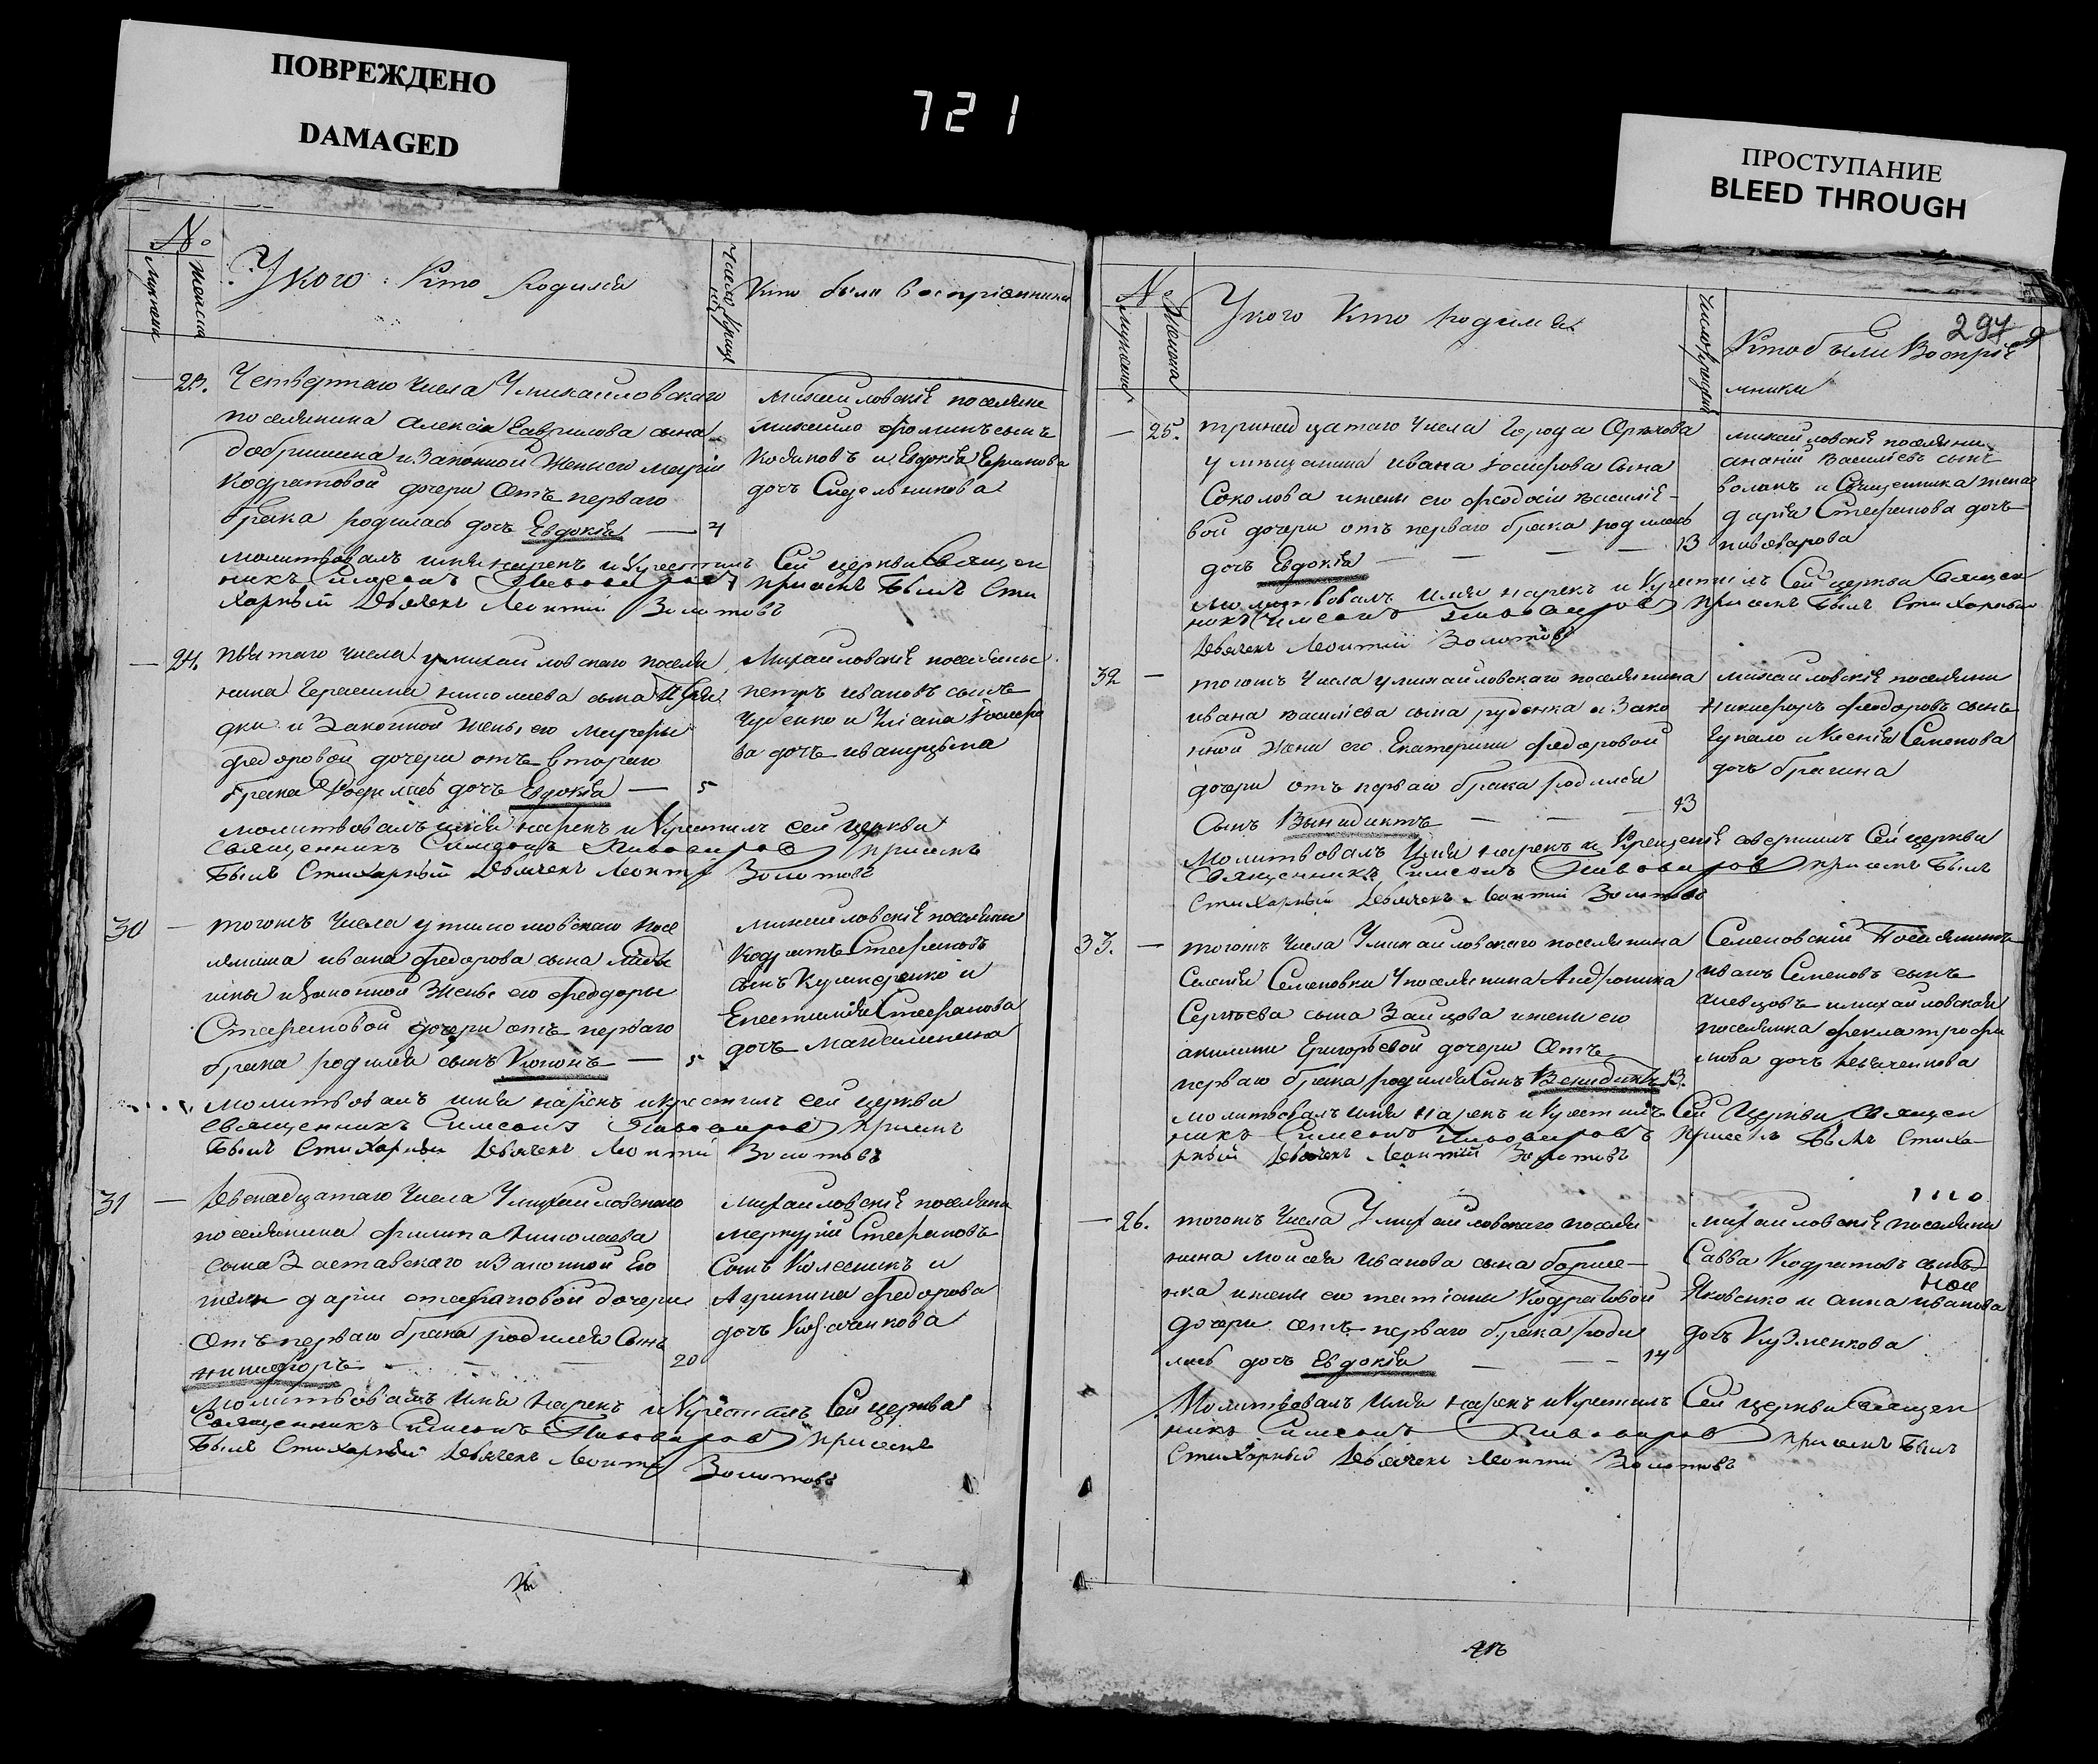 ПОВРЕЖДЕНО
DAMAGED
721
ПРОСТУПАНИЕ
BLEED THROUGH
№
Мужеска
Женска
У кого Кто Родился
Кто были восприемники
23.
Четвертаго Числа У михаиловскаго
поселянина алексія Гаврилова сына
и законной Жены его маріи
Кодратовой дочери Отъ перваго
брака родилась дочь Евдокіа — 4
михаиловскіе поселяне
михаило фоминъ сынъ
и Евдокіа
дочь Сидельникова
молитвовалъ имя нарекъ и Крестилъ Сей церкви Священ
никъ Симеонъ Пивоваровъ при семъ Былъ Сти
харный Дьячекъ Леонтій Золотовъ
24.
пятаго числа у михаиловскаго поселя
нина Герасима николаева сына
и Законной жены его
федоровой дочери отъ втораго
брака Родилась дочь Евдокіа — 5
Михаиловскіе поселяне
петръ ивановъ сынъ
и Уліана
ва дочь
молитвовалъ имя нарекъ и Крестилъ сей церкви
Священникъ Симеонъ Пивоваровъ при семъ
Былъ Стихарный Дьячекъ Леонтій Золотовъ
30
тогожъ Числа у михаиловскаго посе
лянина ивана федорова сына
и Законной Жены его феодоры
Стефановой дочери отъ перваго
брака родился сынъ Кононъ — 5
михаиловскіе поселяни
Кодратъ Стефановъ
сынъ и
Стефанова
дочь
молитвовалъ имя нарекъ и крестилъ сей церкви
священникъ Симеонъ Пивоваровъ при семъ
Былъ Стихарный Дьячекъ Леонтій Золотовъ
31
Двенадцатаго Числа У михаиловскаго
поселянина филипа николаева
сына Заставскаго и Законной Его
жены даріи стефановой дочери
Отъ перваго брака родился Сынъ
никифоръ 20
михаиловскіе поселяни
меркурій Стефановъ
Сынъ Колесникъ и
Агрипина федорова
дочь
Молитвовалъ имя нарекъ и Крестилъ Сей церкви
Священникъ Симеонъ Пивоваровъ при семъ
Былъ Стихарный Дьячекъ Леонтій Золотовъ
№
Мужеска
Женска
У кого Кто родился
Число крещенія
Кто были Воспріе
мники
297
25.
тринадцатаго Числа Города Орехова
у мещанина ивана іосифова Сына
Соколова и жени его феодосіи василіе-
вой дочери отъ перваго брака родилась
дочь Евдокіа — 13
михаиловскіе поселяни
ананій Василіевъ сынъ
воланъ и Священника жена
даріа Стефанова дочь
пивоварова
Молитвовалъ имя нарекъ и Крестилъ Сей церкви Священ
никъ Симеонъ Пивоваровъ при семъ Былъ Стихарный
Дьячекъ Леонтій Золотовъ
32
тогожъ Числа у михаиловскаго поселянина
ивана василіева сына руденка и Зако
нной Жени его Екатерини федоровой
дочери отъ перваго брака родился
Сынъ Вынидиктъ — 13
михаиловскіе поселяни
Никифоръ феодоровъ сынъ
и Ксенія Семенова
дочь брагина
Молитвовалъ Имя нарекъ и Крещеніе совершилъ Сей церкви
Священникъ Симеонъ Пивоваровъ при семъ Былъ
Стихарный Дьячекъ Леонтій Золотовъ
33.
тогожъ Числа У михаиловскаго поселянина
Селенія Семеновки У поселянина Андроника
Сергіева сына Зайцова и жени его
акилини Григорьевой дочери Отъ
перваго брака родился Сынъ Венидиктъ 13.
Семеновскій Поселянинъ
иванъ Семеновъ сынъ
и михаиловская
поселянка фекла трофи
мова дочь Дьяченкова
молитвовалъ имя нарекъ и Крестилъ Сей Церкви Священ
никъ Симеонъ Пивоваровъ при семъ Былъ Стиха
рный Дьячекъ Леонтій Золотовъ
26.
тогожъ Числа У михаиловскаго поселя
нина моисея иванова сына борисе-
нка и жени его татіани Кодратовой
дочери отъ перваго брака роди
лась дочь Евдокіа — 14
михаиловскіе поселяни
Савва Кодратовъ сынъ
Яковенко и анна иванова
дочь Кузменкова
Молитвовалъ Имя нарекъ и Крестилъ Сей церкви Священ
никъ Симеонъ Пивоваровъ при семъ Былъ
Стихарный Дьячекъ Леонтій Золотовъ